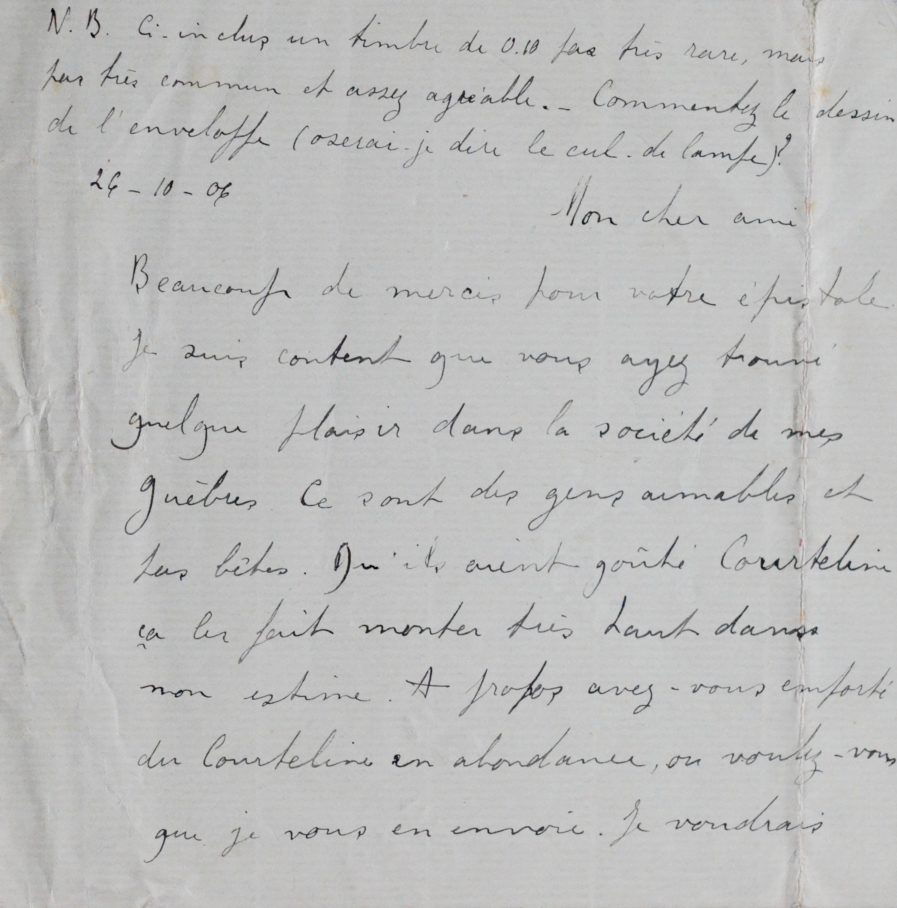 N. B. Ci-inclus un timbre de 0.10 pas très rare, mais
pas très commun et assez agréable. - Commentez le dessin
de l'enveloppe (oserai-je dire le cul-de lampe)?
26 - 10 - 06
Mon cher ami
Beaucoup de mercis pour votre épistole.
Je suis content que vous ayez trouvé
quelque plaisir dans la société de mes
Guèbres Ce sont des gens aimables et
pas bêtes. Qu'ils aient goûté Courteline
ça les fait monter très haut dans
mon estime. A propos avez-vous emporté
du Courteline en abondance, ou voulez-vous
que je vous en envoie. Je voudrais